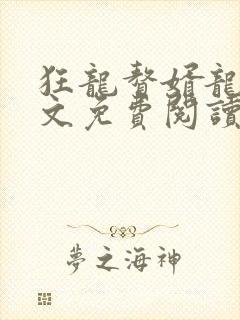 狂龍贅婿龍
文免費閱讀
夢之海神